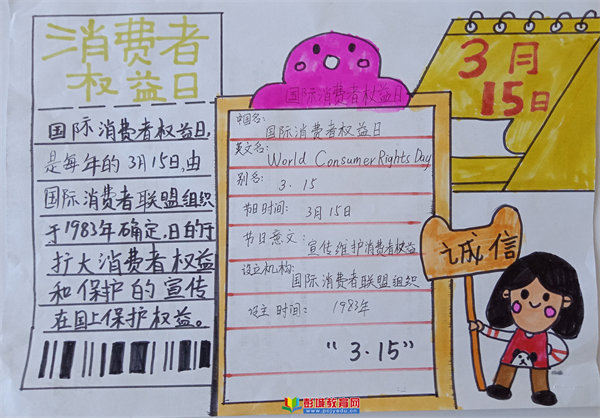 消费者
权益日
国际消费者权益日,
是每年的3月15日,由
国际消费者联盟组织
于1983年确定,目的于
扩大消费者权益
和保护的宣传
在国上保护权益。
国际消费者权益日
中国名:
国际消费者权益日
英文名:
World Consumer Rights Day
别名:
3.15
节日时间: 3月15日
节日意义: 宣传维护消费者权益
设立机构:
国际消费者联盟组织
设立时间: 1983年
"3·15"
3月
15日
诚信
彭城教育网
www.pcjyedu.cn